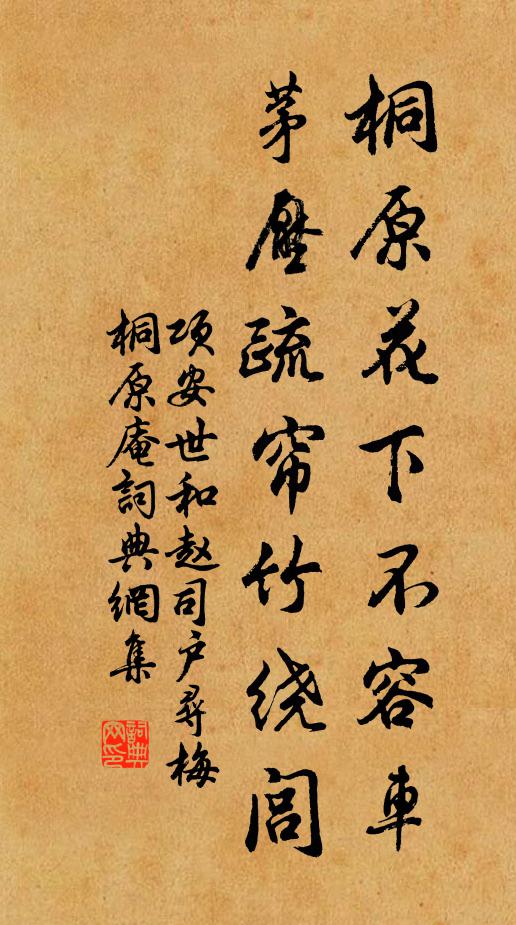 桐原花下不容車
茅壓疏帘竹绕閭
项安世和赵司户尋梅
桐原庵詞典網集
詞典网印